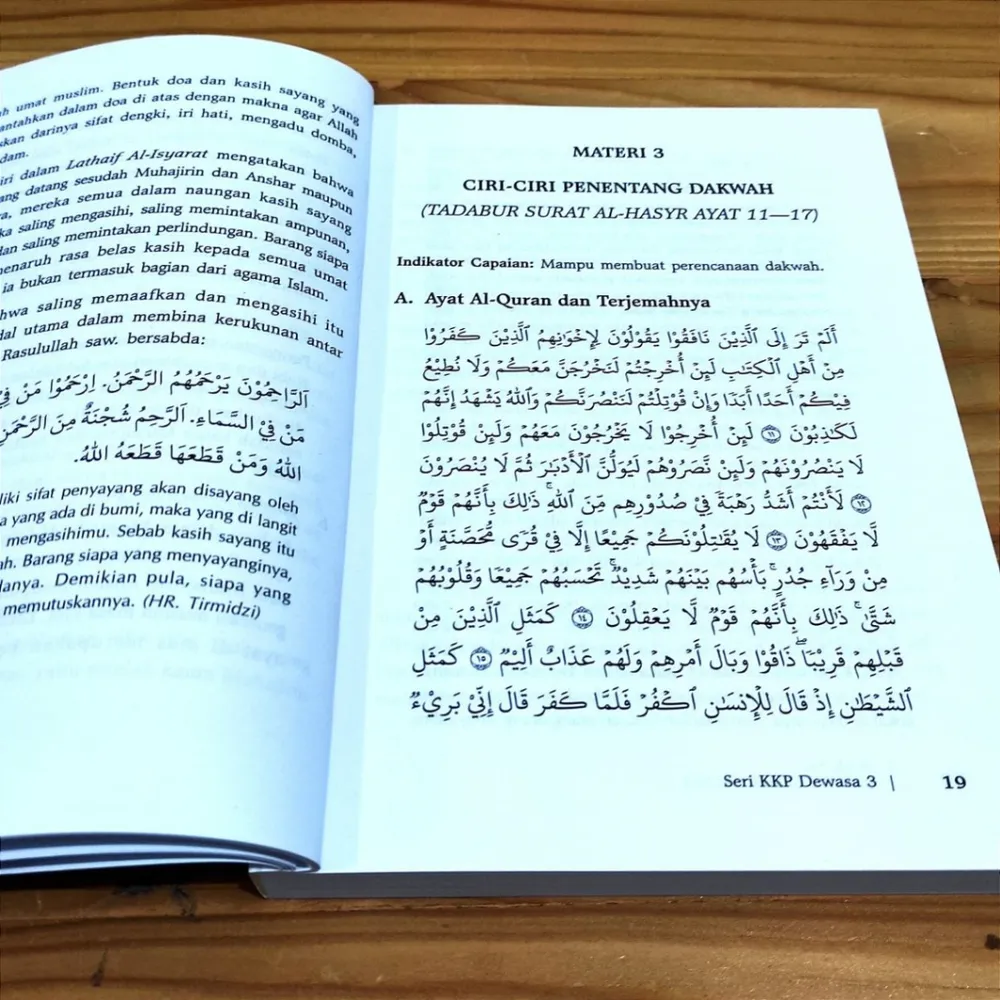 umat muslim. Bentuk doa dan kasih sayang yang
dalam doa di atas dengan makna agar Allah
darinya sifat dengki, iri hati, mengadu domba,
dalam Lathaif Al-Isyarat mengatakan bahwa
datang sesudah Muhajirin dan Anshar maupun
mereka semua dalam naungan kasih sayang
saling mengasihi, saling memintakan ampunan,
dan saling memintakan perlindungan. Barang siapa
menaruh rasa belas kasih kepada semua umat
ia bukan termasuk bagian dari agama Islam.
saling memaafkan dan mengasihi itu
utama dalam membina kerukunan antar
Rasulullah saw. bersabda:
اَلرَّاحِمُوْنَ يَرْحَمُهُمُ الرَّحْمَنُ. اِرْحَمُوْا مَنْ فِي
مَنْ فِي السَّمَاءِ. اَلرَّحِمُ شُجْنَةٌ مِنَ الرَّحْمَنِ
اللهُ وَمَنْ قَطَعَهَا قَطَعَهُ اللهُ.
sifat penyayang akan disayang oleh
yang ada di bumi, maka yang di langit
mengasihimu. Sebab kasih sayang itu
Barang siapa yang menyayanginya,
Demikian pula, siapa yang
memutuskannya. (HR. Tirmidzi)
MATERI 3
CIRI-CIRI PENENTANG DAKWAH
(TADABUR SURAT AL-HASYR AYAT 11—17)
Indikator Capaian: Mampu membuat perencanaan dakwah.
A. Ayat Al-Quran dan Terjemahnya
أَلَمْ تَرَ إِلَى ٱلَّذِينَ نَافَقُوا۟ يَقُولُونَ لِإِخْوَٰنِهِمُ ٱلَّذِينَ كَفَرُوا۟
مِنْ أَهْلِ ٱلْكِتَٰبِ لَئِنْ أُخْرِجْتُمْ لَنَخْرُجَنَّ مَعَكُمْ وَلَا نُطِيعُ
فِيكُمْ أَحَدًا أَبَدًا وَإِن قُوتِلْتُمْ لَنَنصُرَنَّكُمْ وَٱللَّهُ يَشْهَدُ إِنَّهُمْ
لَكَٰذِبُونَ ١١ لَئِنْ أُخْرِجُوا۟ لَا يَخْرُجُونَ مَعَهُمْ وَلَئِن قُوتِلُوا۟
لَا يَنصُرُونَهُمْ وَلَئِن نَّصَرُوهُمْ لَيُوَلُّنَّ ٱلْأَدْبَٰرَ ثُمَّ لَا يُنصَرُونَ
١٢ لَأَنتُمْ أَشَدُّ رَهْبَةً فِى صُدُورِهِم مِّنَ ٱللَّهِ ۚ ذَٰلِكَ بِأَنَّهُمْ قَوْمٌ
لَّا يَفْقَهُونَ ١٣ لَا يُقَٰتِلُونَكُمْ جَمِيعًا إِلَّا فِى قُرًى مُّحَصَّنَةٍ أَوْ
مِن وَرَآءِ جُدُرٍۭ ۚ بَأْسُهُم بَيْنَهُمْ شَدِيدٌ ۚ تَحْسَبُهُمْ جَمِيعًا وَقُلُوبُهُمْ
شَتَّىٰ ۚ ذَٰلِكَ بِأَنَّهُمْ قَوْمٌ لَّا يَعْقِلُونَ ١٤ كَمَثَلِ ٱلَّذِينَ مِن
قَبْلِهِمْ قَرِيبًا ۖ ذَاقُوا۟ وَبَالَ أَمْرِهِمْ وَلَهُمْ عَذَابٌ أَلِيمٌ ١٥ كَمَثَلِ
ٱلشَّيْطَٰنِ إِذْ قَالَ لِلْإِنسَٰنِ ٱكْفُرْ فَلَمَّا كَفَرَ قَالَ إِنِّى بَرِىٓءٌ
Seri KKP Dewasa 3 | 19